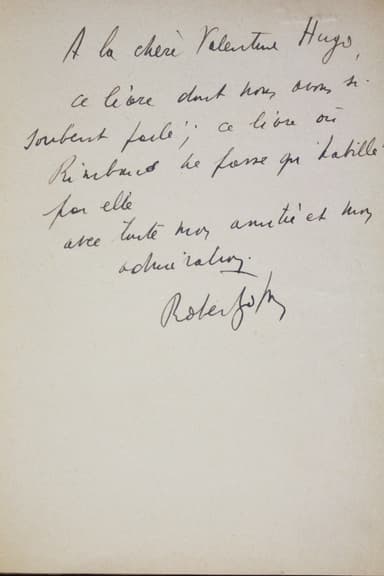 A la chère Valentine Hugo,
ce livre dont nous avons si
souvent parlé ; ce livre où
Rimbaud ne passe qu'habillé
par elle
avec toute mon amitié et mon
admiration.
Robert